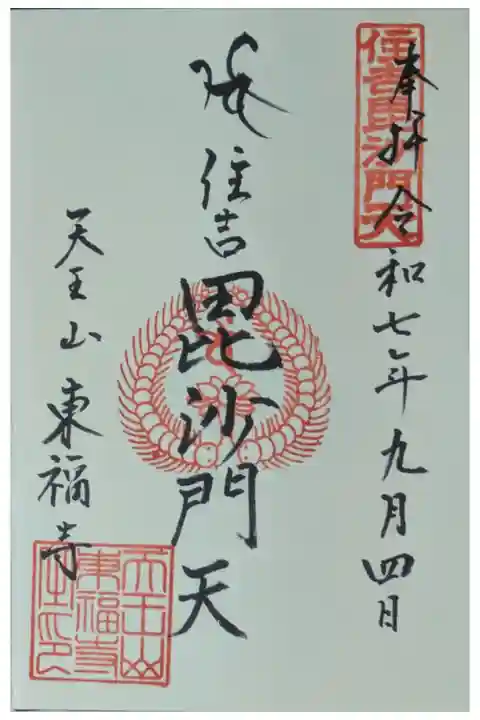 奉拝 令和七年九月四日
住吉毘沙門天
住吉
毘沙門天
天王山 東福寺
天王山
東福寺